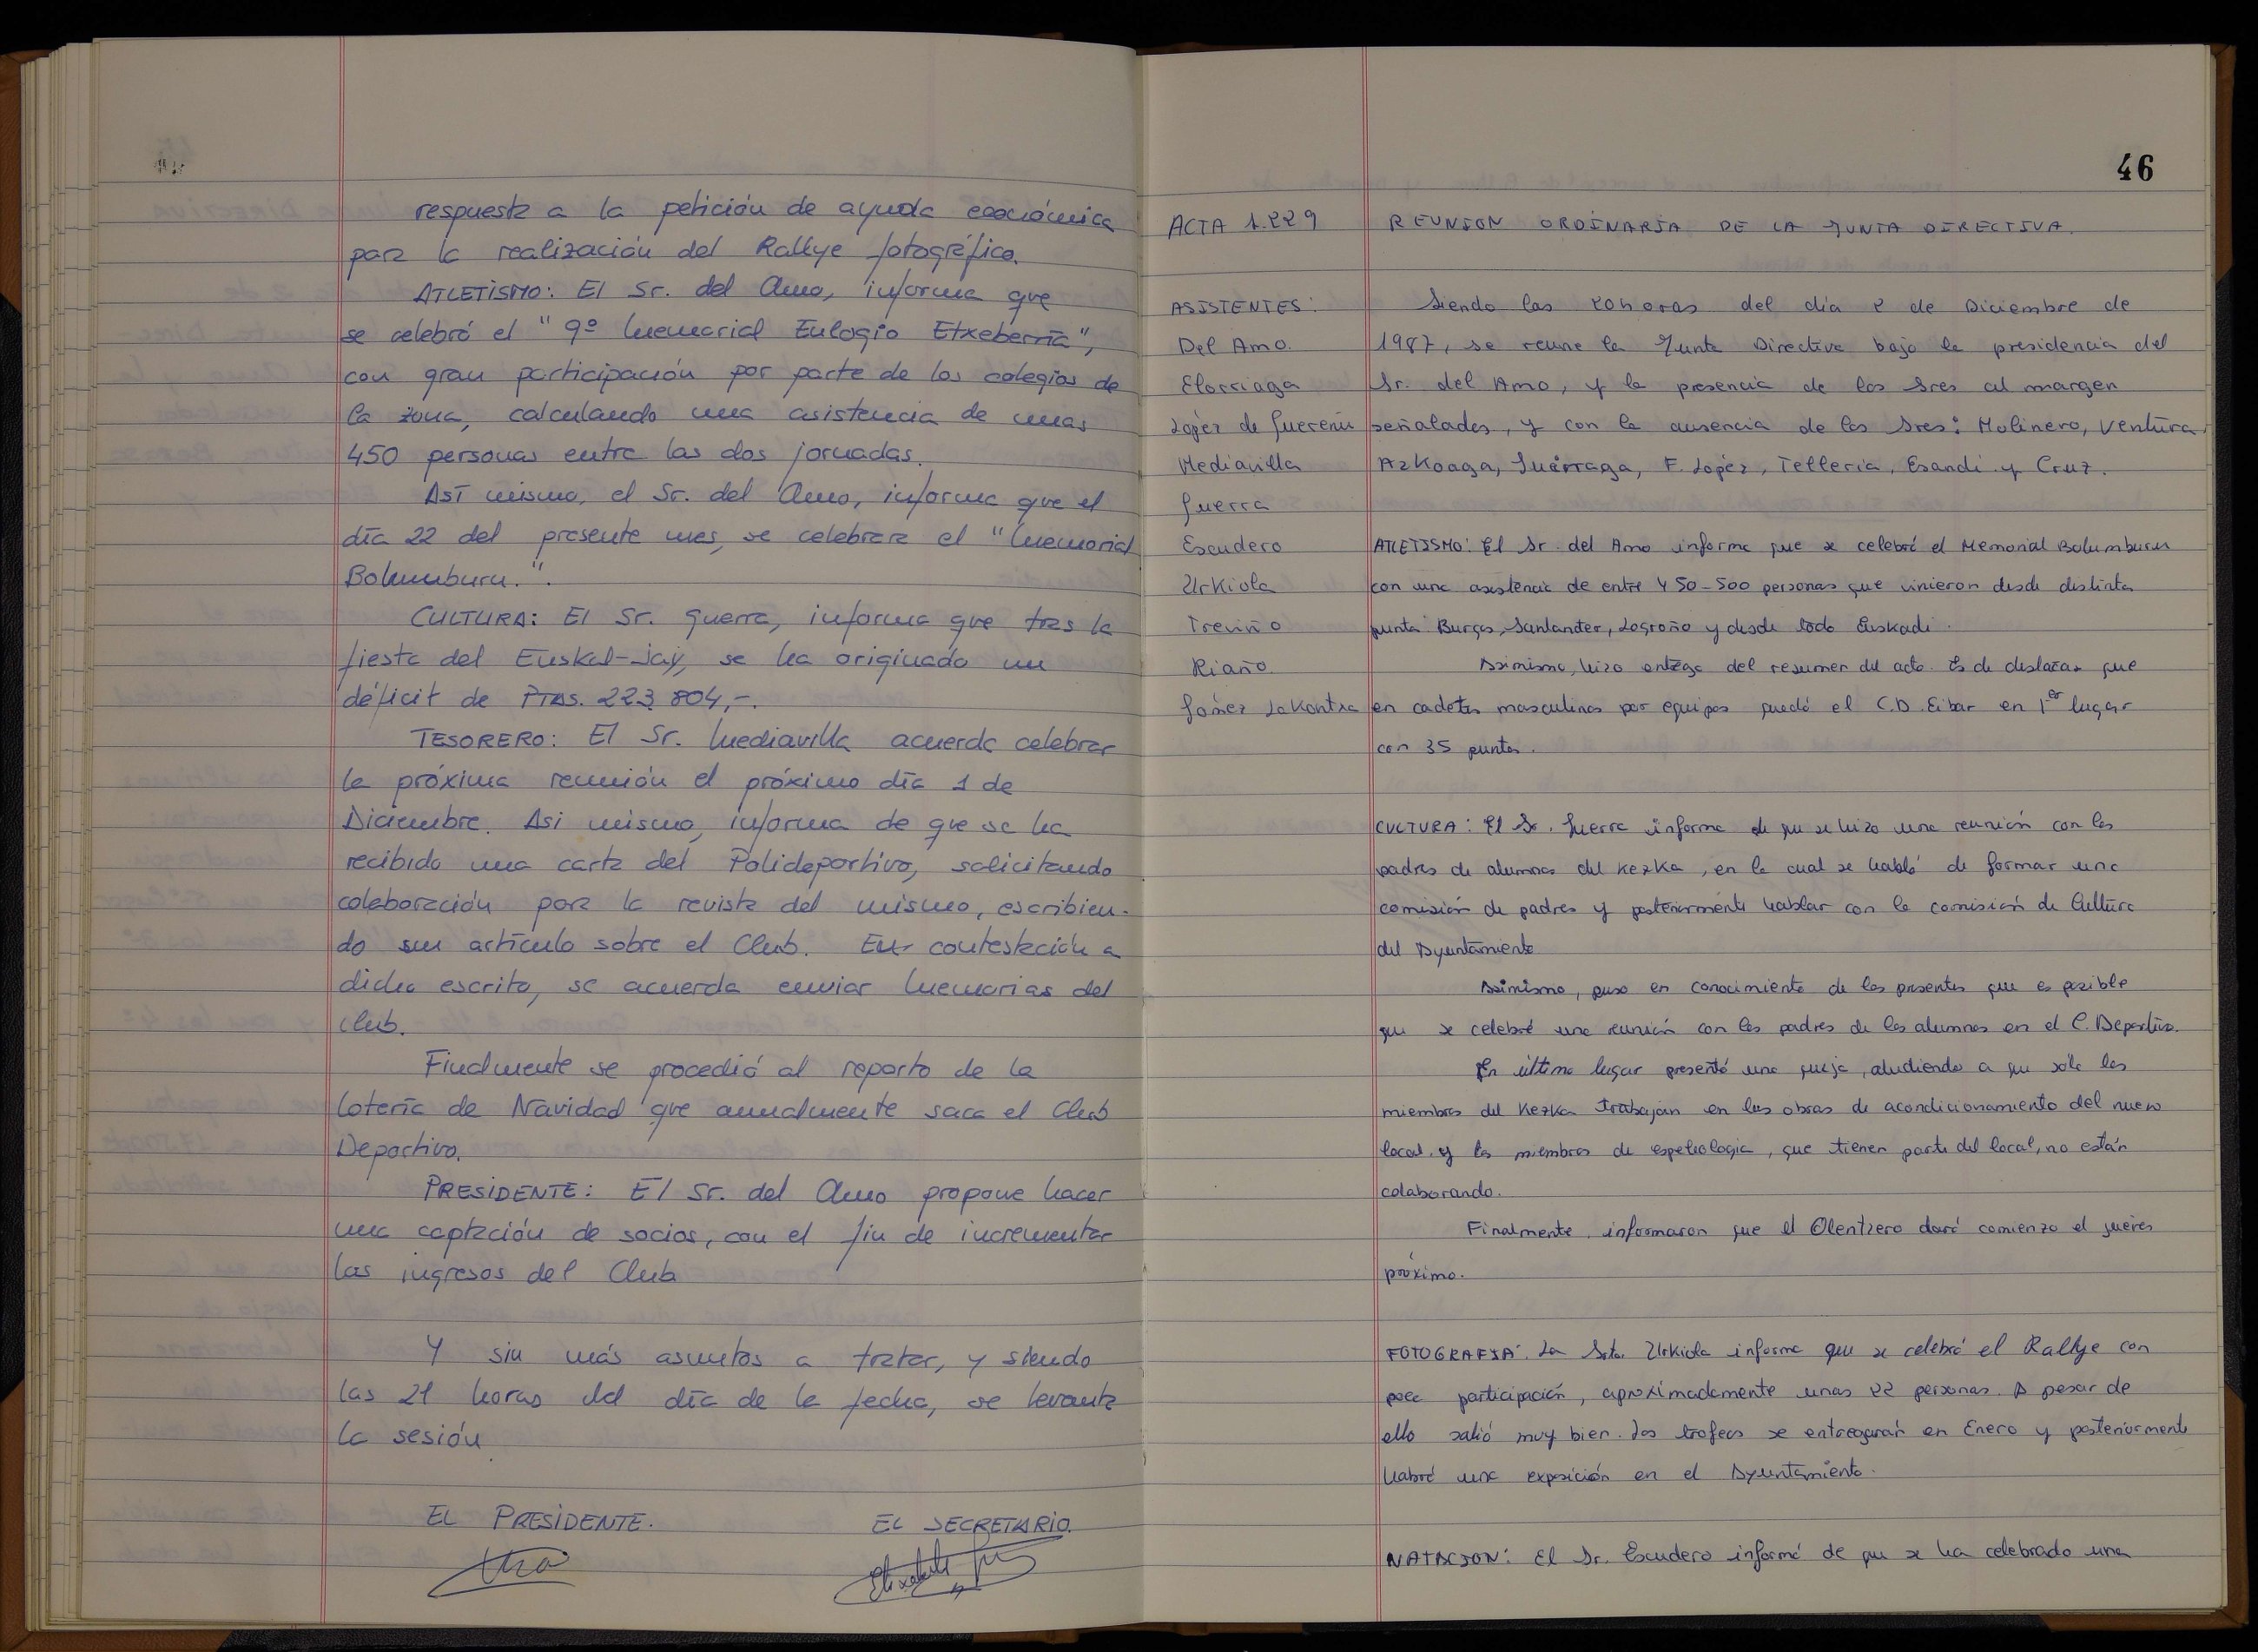 respuesta a la petición de ayuda económica
para la realización del Rallye fotográfico.
ATLETISMO: El Sr. del Amo, informa que
se celebró el "9º Memorial Eulogio Etxeberria",
con gran participación por parte de los colegios de
la zona, calculando una asistencia de unas
450 personas entre las dos jornadas.
Así mismo, el Sr. del Amo, informa que el
día 22 del presente mes, se celebrara el "Memorial
Bolumburu.".
CULTURA: El Sr. Guerra, informa que tras la
fiesta del Euskal-Jay, se ha originado un
déficit de Ptas. 223.804,-.
TESORERO: El Sr. Mediavilla acuerda celebrar
la próxima reunión el próximo día 1 de
Diciembre. Asi mismo, informa de que se ha
recibido una carta del Polideportivo, solicitando
colaboración para la revista del mismo, escribien-
do un artículo sobre el Club. En contestación a
dicho escrito, se acuerda enviar Memorias del
Club.
Finalmente se procedió al reparto de la
lotería de Navidad que anualmente saca el Club
Deportivo.
PRESIDENTE: El Sr. del Amo propone hacer
una captación de socios, con el fin de incrementar
los ingresos del Club
Y sin más asuntos a tratar, y siendo
las 21 horas del día de la fecha, se levanta
la sesión
EL PRESIDENTE.
EL SECRETARIO.
46
ACTA 1.229
REUNION ORDINARIA DE LA JUNTA DIRECTIVA.
ASISTENTES:
Del Amo.
Elorriaga
López de Guereñu
Mediavilla
Guerra
Escudero
Urkiola
Treviño
Riaño.
Gómez Lakontxa
Siendo las 20 horas del día 2 de Diciembre de
1987, se reune la Junta Directiva bajo la presidencia del
Sr. del Amo, y la presencia de los Sres al margen
señalados, y con la ausencia de los Sres: Molinero, Ventura,
Azkoaga, Juárraga, F. López, Telleria, Esandi y Cruz.
ATLETISMO: El Sr. del Amo informa que se celebró el Memorial Bolumburu
con una asistencia de entre 450-500 personas que vinieron desde distintos
puntos Burgos, Santander, Logroño y desde todo Euskadi.
Asimismo, hizo entrega del resumen del acto. Es de destacar que
en cadetes masculinos por equipos quedó el C.D. Eibar en 1er lugar
con 35 puntos.
CULTURA: El Sr. Guerra informa de que se hizo una reunión con los
padres de alumnos del Kezka, en la cual se habló de formar una
comisión de padres y posteriormente hablar con la comisión de Cultura
del Ayuntamiento
Asimismo, puso en conocimiento de los presentes que es posible
que se celebré una reunión con los padres de los alumnos en el C. Deportivo.
En último lugar presentó una queja, aludiendo a que sólo los
miembros del Kezka trabajan en las obras de acondicionamiento del nuevo
local, y los miembros de espeleologia, que tienen parte del local, no están
colaborando.
Finalmente, informaron que el Olentzero dará comienzo el jueves
próximo.
FOTOGRAFIA: La Srta. Urkiola informa que se celebró el Rallye con
poca participación, aproximadamente unas 22 personas. A pesar de
ello salió muy bien. Los trofeos se entregarán en Enero y posteriormente
habrá una exposición en el Ayuntamiento.
NATACION: El Sr. Escudero informó de que se ha celebrado una